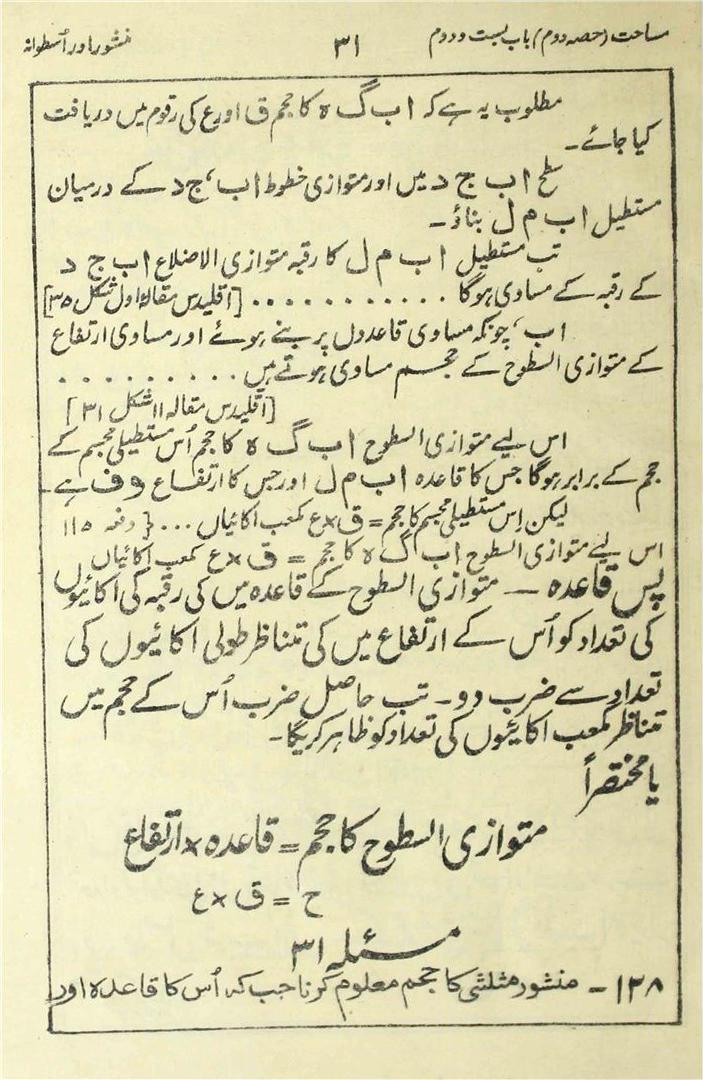 مساحت (حصہ دوم) باب بست و دوم
۳۱
منشور اور اُسطوانہ
مطلوب یہ ہے کہ ا ب گ ہ کا حجم ق اور ع کی رقوم میں دریافت
کیا جائے۔
سطح ا ب ج د میں اور متوازی خطوط ا ب، ج د کے درمیان
مستطیل ا ب م ل بناؤ۔
تب مستطیل ا ب م ل کا رقبہ متوازی الاضلاع ا ب ج د
کے رقبہ کے مساوی ہوگا ............ [اقلیدس مقالہ اول شکل ۳۵]
اب، چونکہ مساوی قاعدوں پر بنے ہوئے اور مساوی ارتفاع
کے متوازی السطوح کے حجم مساوی ہوتے ہیں..........
[اقلیدس مقالہ ۱۱ شکل ۳۱]
اس لیے متوازی السطوح ا ب گ ہ کا حجم اُس مستطیلی مجسم کے
حجم کے برابر ہوگا جس کا قاعدہ ا ب م ل اور جس کا ارتفاع و ف ہے۔
لیکن اِس مستطیلی مجسم کا حجم = ق × ع مکعب اکائیاں ... { دفعہ ۱۱۵
اس لیے متوازی السطوح ا ب گ ہ کا حجم = ق × ع مکعب اکائیاں
پس قاعدہ — متوازی السطوح کے قاعدہ میں کی رقبہ کی اکائیوں
کی تعداد کو اُس کے ارتفاع میں کی متناظر طولی اکائیوں کی
تعداد سے ضرب دو۔ تب حاصل ضرب اُس کے حجم میں
متناظر مکعب اکائیوں کی تعداد کو ظاہر کریگا۔
یا مختصراً
متوازی السطوح کا حجم = قاعدہ × ارتفاع
ح = ق × ع
مسئلہ ۳۱
۱۲۸ - منشور مثلثی کا حجم معلوم کرنا جب کہ اُس کا قاعدہ اور